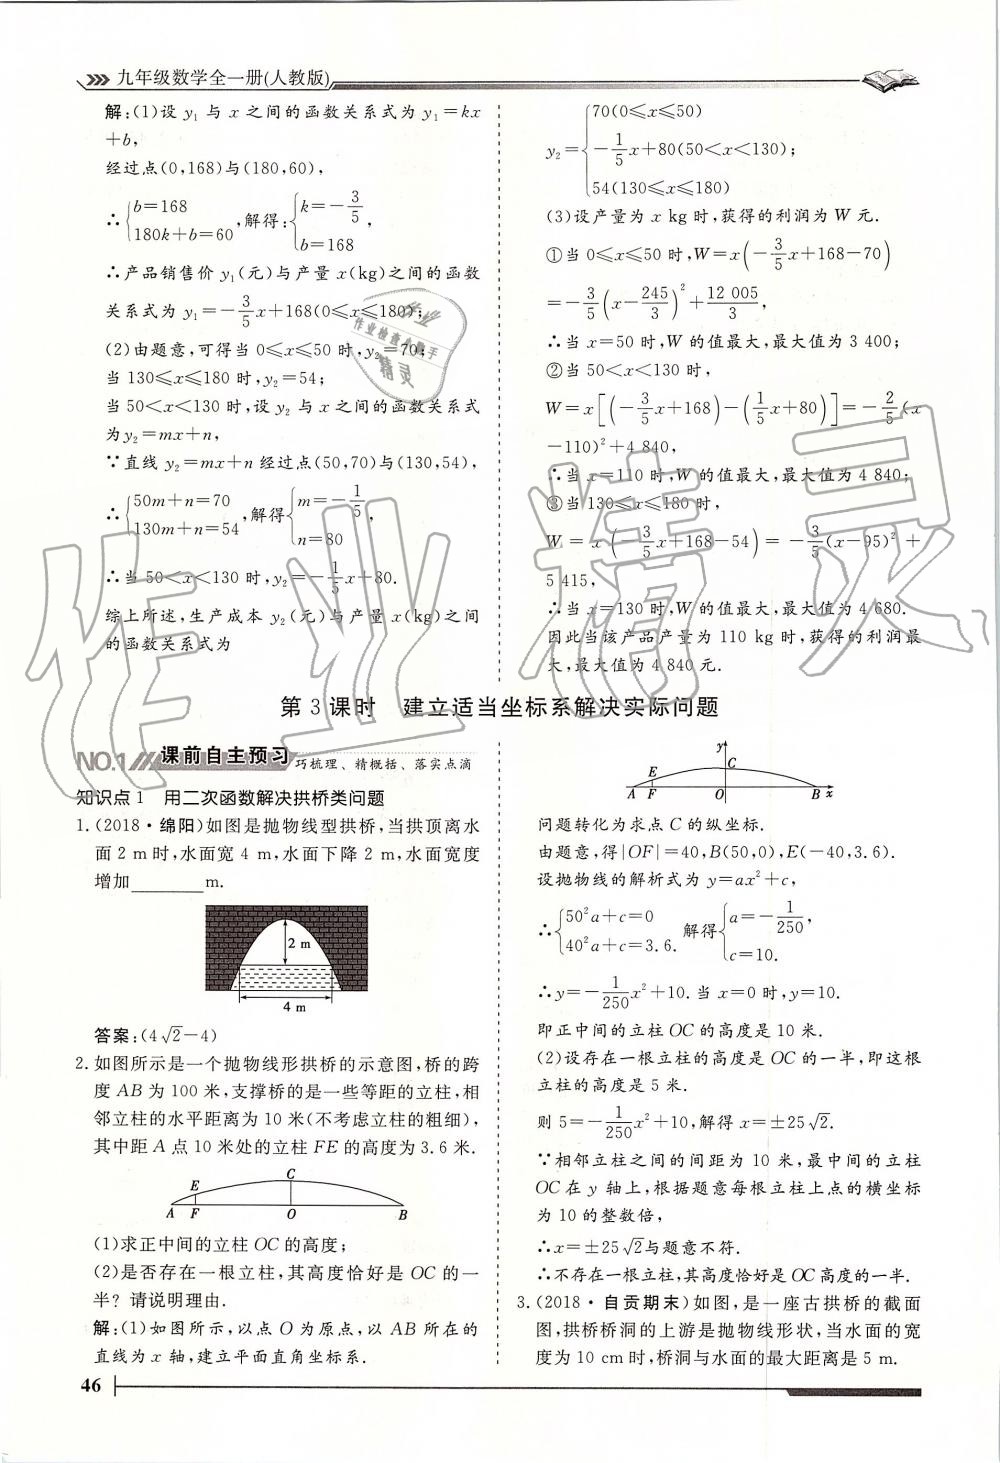 九年级数学全一册(人教版)
解:(1)设 y₁ 与 x 之间的函数关系式为 y₁=kx
+b,
经过点(0,168)与(180,60),
∴{b=168
180k+b=60,解得:{k=-3/5,
b=168
∴产品销售价 y₁(元)与产量 x(kg)之间的函数
关系式为 y₁=-3/5x+168(0≤x≤180);
(2)由题意,可得当 0≤x≤50 时,y₂=70;
当 130≤x≤180 时,y₂=54;
当 50<x<130 时,设 y₂ 与 x 之间的函数关系式
为y₂=mx+n,
∵直线 y₂=mx+n 经过点(50,70)与(130,54),
∴{50m+n=70
130m+n=54,解得{m=-1/5,
n=80
∴当 50<x<130 时,y₂=-1/5x+80.
综上所述,生产成本 y₂(元)与产量 x(kg)之间
的函数关系式为
y₂={70(0≤x≤50)
-1/5x+80(50<x<130);
54(130≤x≤180)
(3)设产量为 x kg 时,获得的利润为 W 元.
①当 0≤x≤50 时,W=x(-3/5x+168-70)
=-3/5(x-245/3)²+12 005/3,
∴当 x=50 时,W 的值最大,最大值为 3 400;
②当 50<x<130 时,
W=x[(-3/5x+168)-(1/5x+80)]=-2/5(x
-110)²+4 840,
∴当 x=110 时,W 的值最大,最大值为 4 840;
③当 130≤x≤180 时,
W=x(-3/5x+168-54)=-3/5(x-95)²+
5 415,
∴当 x=130 时,W 的值最大,最大值为 4 680.
因此当该产品产量为 110 kg 时,获得的利润最
大,最大值为 4 840 元.
作业检查小助手
精灵
作业精灵
第 3 课时 建立适当坐标系解决实际问题
NO.1 课前自主预习 巧梳理、精概括、落实点滴
知识点 1 用二次函数解决拱桥类问题
1.(2018·绵阳)如图是抛物线型拱桥,当拱顶离水
面 2 m 时,水面宽 4 m,水面下降 2 m,水面宽度
增加________m.
2 m
4 m
答案:(4√2-4)
2.如图所示是一个抛物线形拱桥的示意图,桥的跨
度 AB 为 100 米,支撑桥的是一些等距的立柱,相
邻立柱的水平距离为 10 米(不考虑立柱的粗细),
其中距 A 点 10 米处的立柱 FE 的高度为 3.6 米.
E C
A F O B
(1)求正中间的立柱 OC 的高度;
(2)是否存在一根立柱,其高度恰好是 OC 的一
半? 请说明理由.
解:(1)如图所示,以点 O 为原点,以 AB 所在的
直线为 x 轴,建立平面直角坐标系.
y
E C
A F O B x
问题转化为求点 C 的纵坐标.
由题意,得|OF|=40,B(50,0),E(-40,3.6).
设抛物线的解析式为 y=ax²+c,
∴{50²a+c=0
40²a+c=3.6. 解得{a=-1/250,
c=10.
∴y=-1/250x²+10.当 x=0 时,y=10.
即正中间的立柱 OC 的高度是 10 米.
(2)设存在一根立柱的高度是 OC 的一半,即这根
立柱的高度是 5 米.
则 5=-1/250x²+10,解得 x=±25√2.
∵相邻立柱之间的间距为 10 米,最中间的立柱
OC 在 y 轴上,根据题意每根立柱上点的横坐标
为 10 的整数倍,
∴x=±25√2与题意不符.
∴不存在一根立柱,其高度恰好是 OC 高度的一半.
3.(2018·自贡期末)如图,是一座古拱桥的截面
图,拱桥桥洞的上游是抛物线形状,当水面的宽
度为 10 cm时,桥洞与水面的最大距离是 5 m.
46